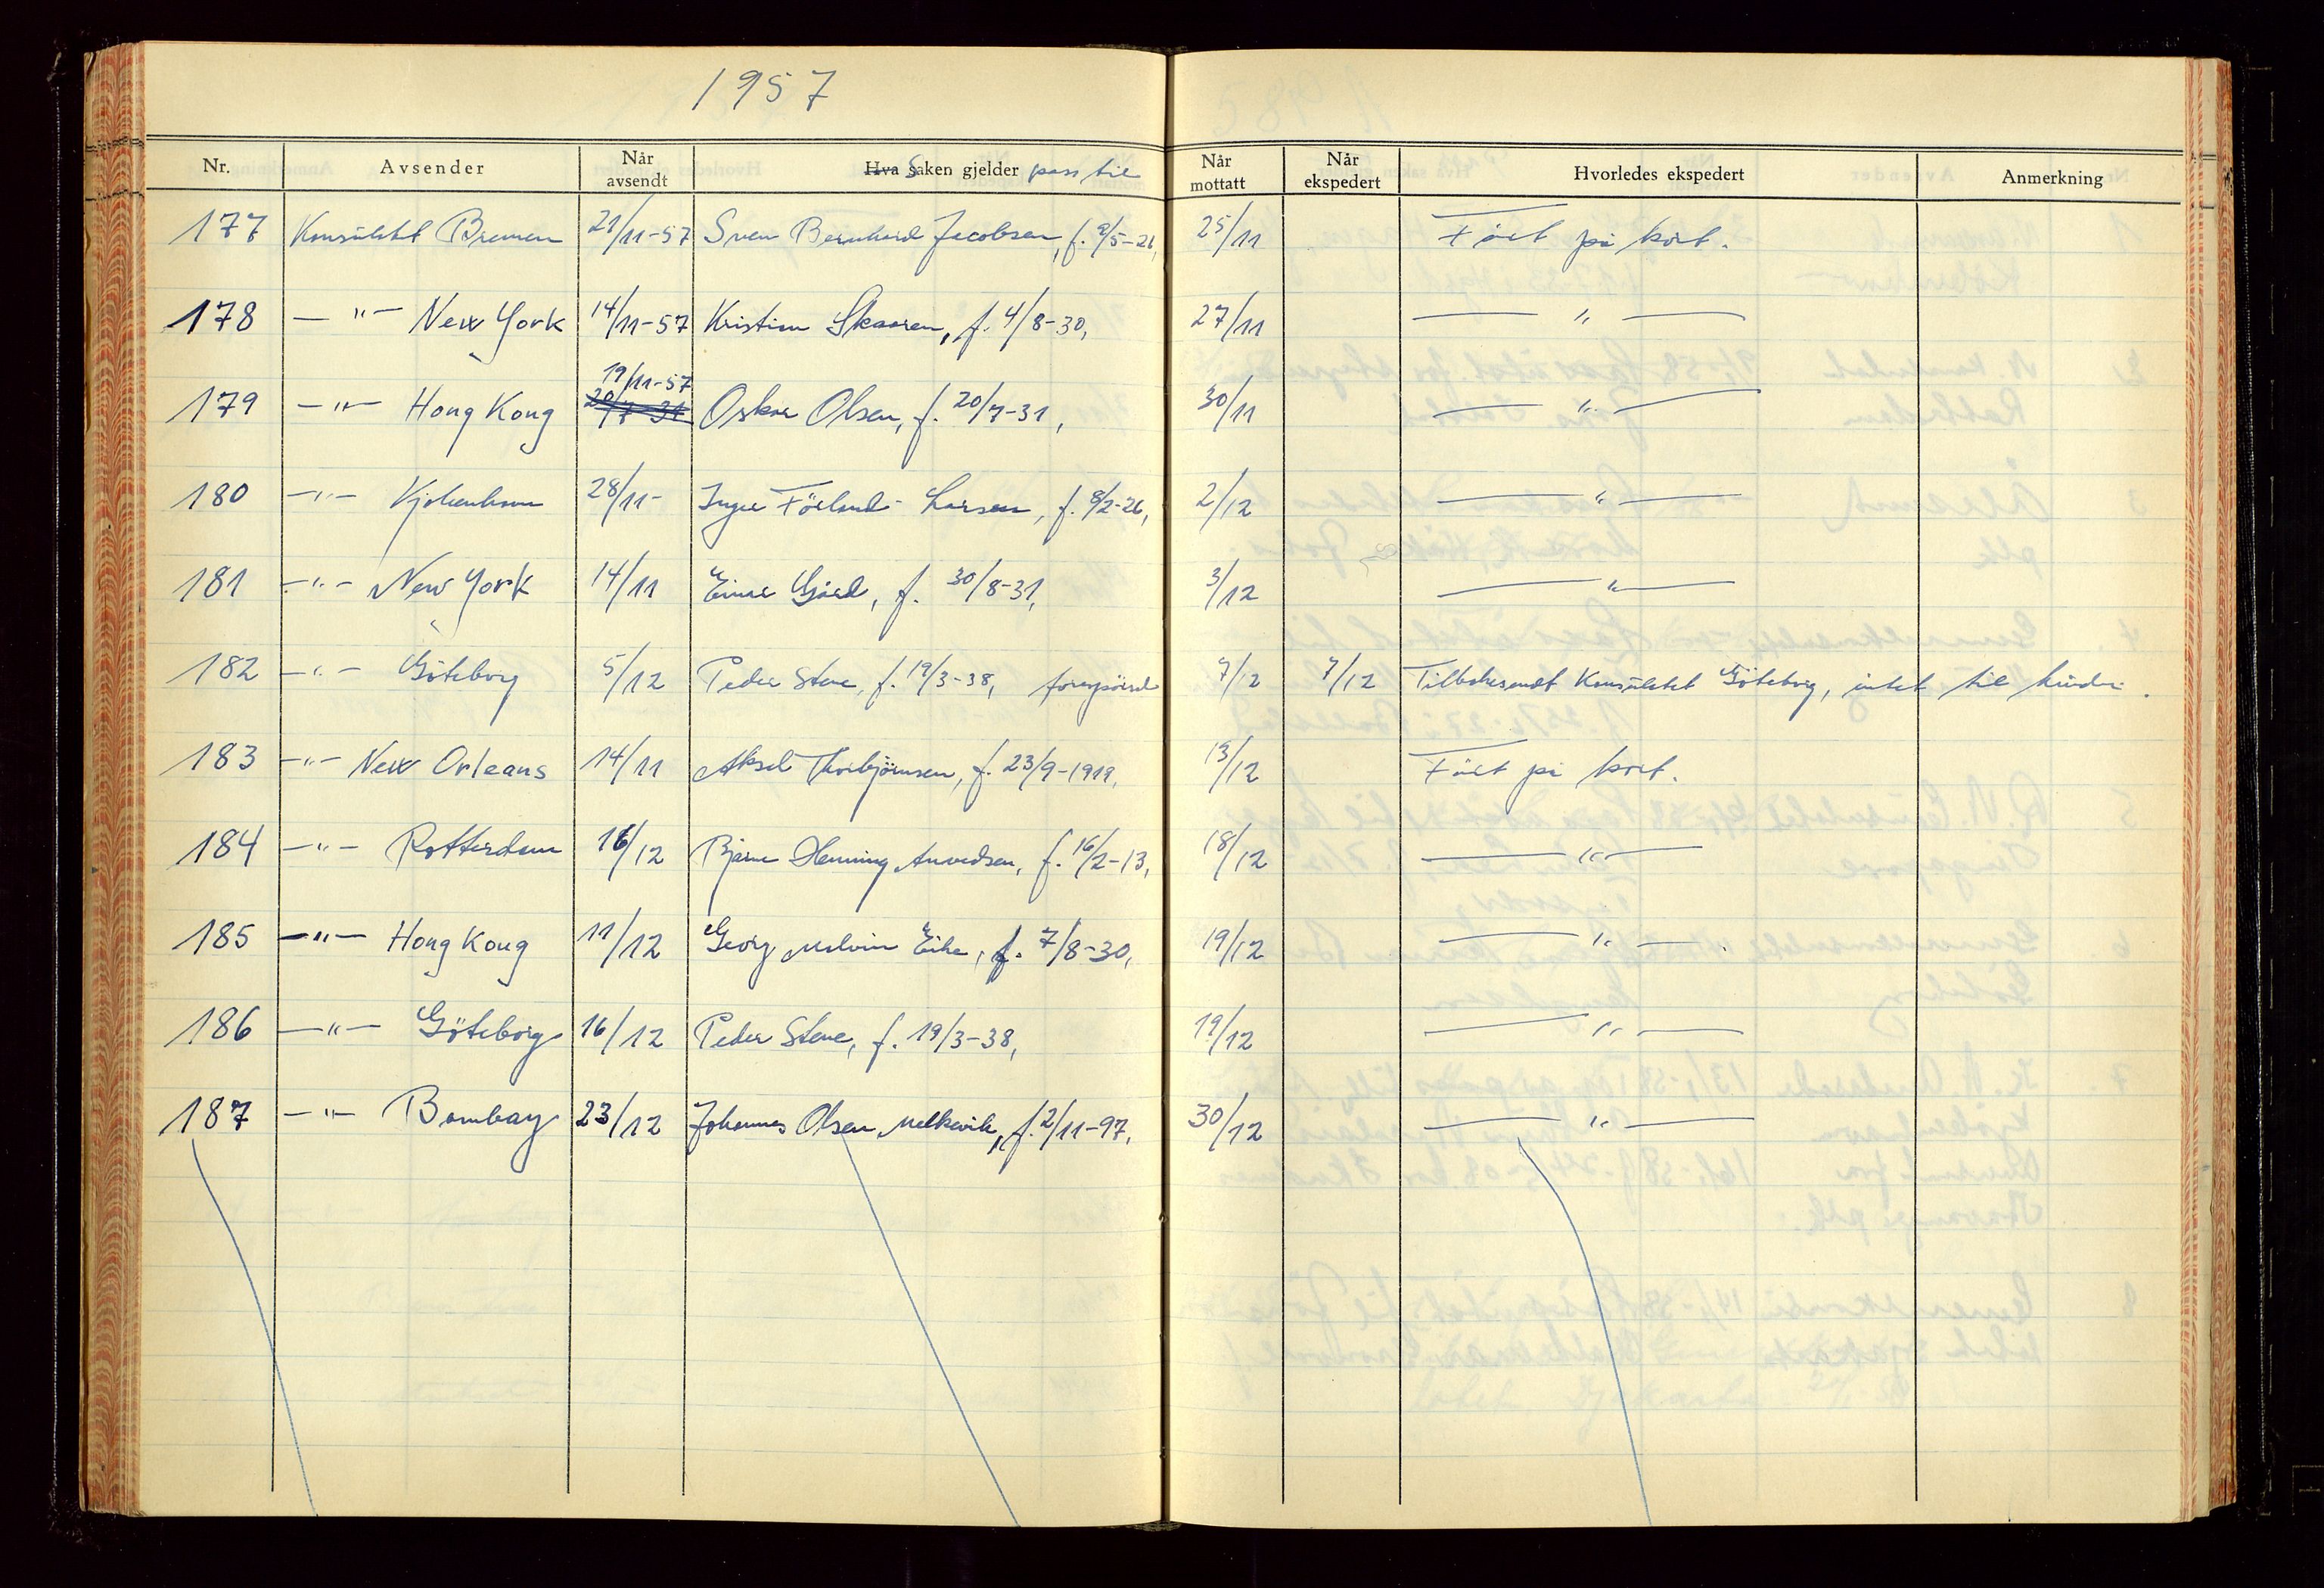 1957
Nr. Avsender Når avsendt Hva Saken gjelder pass til Når mottatt Når ekspedert Hvorledes ekspedert Anmerkning
177 Konsulatet Bremen 21/11-57 Sven Bernhard Jacobsen, f. 9/5-26, 25/11 Ført på kort.
178 -"- New York 14/11-57 Kristian Skaaren, f. 4/8-30, 27/11 -"-
19/11-57
179 -"- Hong Kong 20/7-31 Oskar Olsen, f. 20/7-31, 30/11 -"-
180 -"- Kjøbenhavn 28/11- Inger Förland Larsen, f. 8/2-26, 2/12 -"-
181 -"- New York 14/11 Einar Gjörd, f. 30/8-31, 3/12 -"-
182 -"- Göteborg 5/12 Peder Stene, f. 19/3-38, forespörsel 7/12 7/12 Tilbakesendt Konsulatet Göteborg, intet til hinder.
183 -"- New Orleans 14/11 Aksel Thorbjörnsen, f. 23/9-1919, 13/12 Ført på kort.
184 -"- Rotterdam 16/12 Bjarne Henning Anvedsen, f. 16/2-13, 18/12 -"-
185 -"- Hong Kong 11/12 Georg Melvin Eike, f. 7/8-30, 19/12 -"-
186 -"- Göteborg 16/12 Peder Stene, f. 19/3-38, 19/12 -"-
187 -"- Bombay 23/12 Johannes Olsen Melkevik, f. 2/11-97, 30/12 -"-